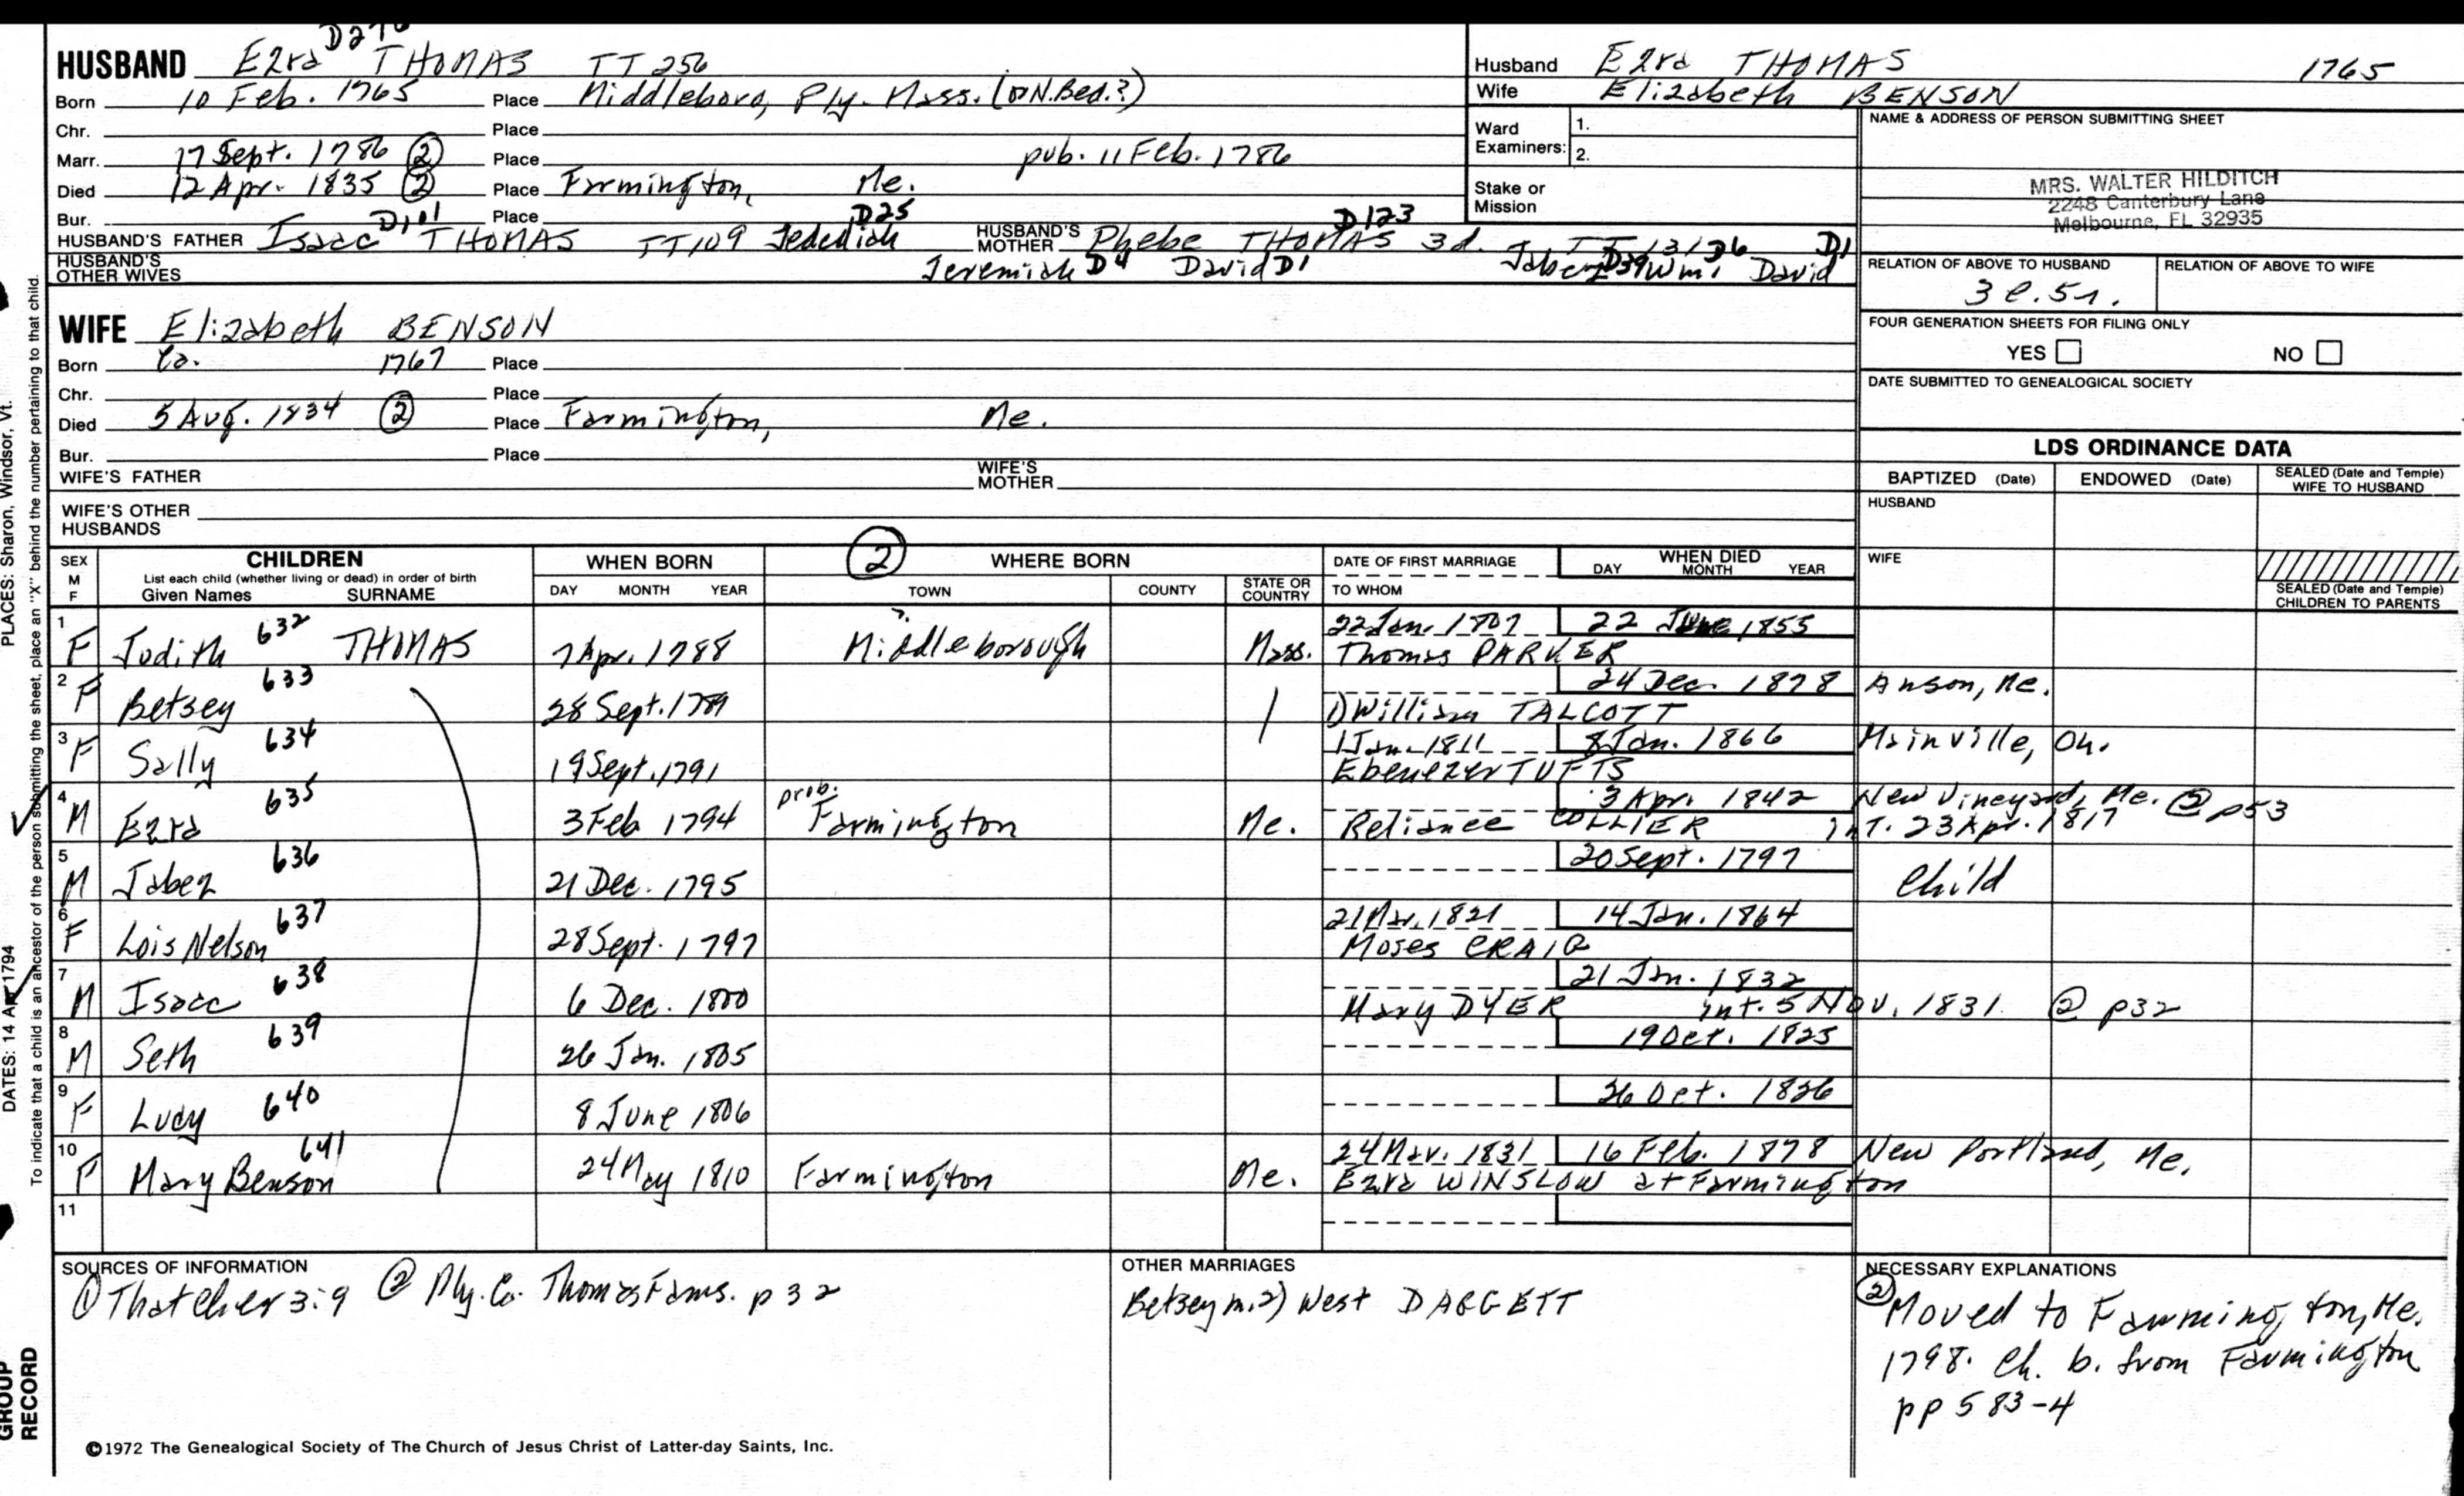 D276
HUSBAND Ezra THOMAS TT 256
Born 10 Feb. 1765 Place Middleboro, Ply. Mass. (or N.Bed.?)
Chr. Place
Marr. 17 Sept. 1786 ② Place pub. 11 Feb. 1786
Died 12 Apr. 1835 ② Place Farmington, Me.
Bur. Place
HUSBAND'S FATHER Isaac D101 THOMAS TT109 Jedediah D25 HUSBAND'S MOTHER Phebe THOMAS 3d. D123
HUSBAND'S OTHER WIVES Jeremiah D4 David D1 Jabez D39 Wm. D6 David D1
Husband Ezra THOMAS 1765
Wife Elizabeth BENSON
Ward Examiners: 1.
2.
Stake or Mission
NAME & ADDRESS OF PERSON SUBMITTING SHEET
MRS. WALTER HILDITCH
2248 Canterbury Lane
Melbourne, FL 32935
RELATION OF ABOVE TO HUSBAND RELATION OF ABOVE TO WIFE
3 c.5r.
FOUR GENERATION SHEETS FOR FILING ONLY
YES NO
DATE SUBMITTED TO GENEALOGICAL SOCIETY
WIFE Elizabeth BENSON
Born Ca. 1767 Place
Chr. Place
Died 5 Aug. 1834 ② Place Farmington, Me.
Bur. Place
WIFE'S FATHER WIFE'S MOTHER
WIFE'S OTHER HUSBANDS
LDS ORDINANCE DATA
BAPTIZED (Date) ENDOWED (Date) SEALED (Date and Temple) WIFE TO HUSBAND
HUSBAND
WIFE
SEALED (Date and Temple) CHILDREN TO PARENTS
SEX M F CHILDREN List each child (whether living or dead) in order of birth Given Names SURNAME
WHEN BORN DAY MONTH YEAR
② WHERE BORN TOWN COUNTY STATE OR COUNTRY
DATE OF FIRST MARRIAGE TO WHOM
WHEN DIED DAY MONTH YEAR
1 F Judith 632 THOMAS 7 Apr. 1788 ? Middleborough Mass. 22 Jan. 1807 22 June 1855
Thomas PARKER
2 F Betsey 633 28 Sept. 1789 24 Dec. 1878 Anson, Me.
1) William TALCOTT
3 F Sally 634 19 Sept. 1791 1 Jan. 1811 8 Jan. 1866 Mainville, Oh.
Ebenezer TUFTS
4 M Ezra 635 3 Feb 1794 prob. Farmington Me. 3 Apr. 1842 New Vineyard, Me. ② p53
Reliance COLLIER int. 23 Apr. 1817
5 M Jabez 636 21 Dec. 1795 20 Sept. 1797 Child
6 F Lois Nelson 637 28 Sept. 1797 21 Mar. 1821 14 Jan. 1864
Moses CRAIG
7 M Isaac 638 6 Dec. 1800 21 Jan. 1832
Mary DYER int. 5 NOV. 1831 ② p32
8 M Seth 639 26 Jan. 1805 19 Oct. 1825
9 F Lucy 640 8 June 1806 26 Oct. 1826
10 F Mary Benson 641 24 May 1810 Farmington Me. 24 Mar. 1831 16 Feb. 1878 New Portland, Me.
Ezra WINSLOW at Farmington
11
SOURCES OF INFORMATION
① Thatcher 3:9 ② Ply. Co. Thomas Fams. p 32
OTHER MARRIAGES
Betsey m. 2) West DAGGETT
NECESSARY EXPLANATIONS
② Moved to Farmington, Me.
1798. Ch. b. from Farmington
pp 583-4
©1972 The Genealogical Society of The Church of Jesus Christ of Latter-day Saints, Inc.
PLACES: Sharon, Windsor, Vt.
DATES: 14 Apr 1794
To indicate that a child is an ancestor of the person submitting the sheet, place an "X" behind the number pertaining to that child.
GROUP RECORD